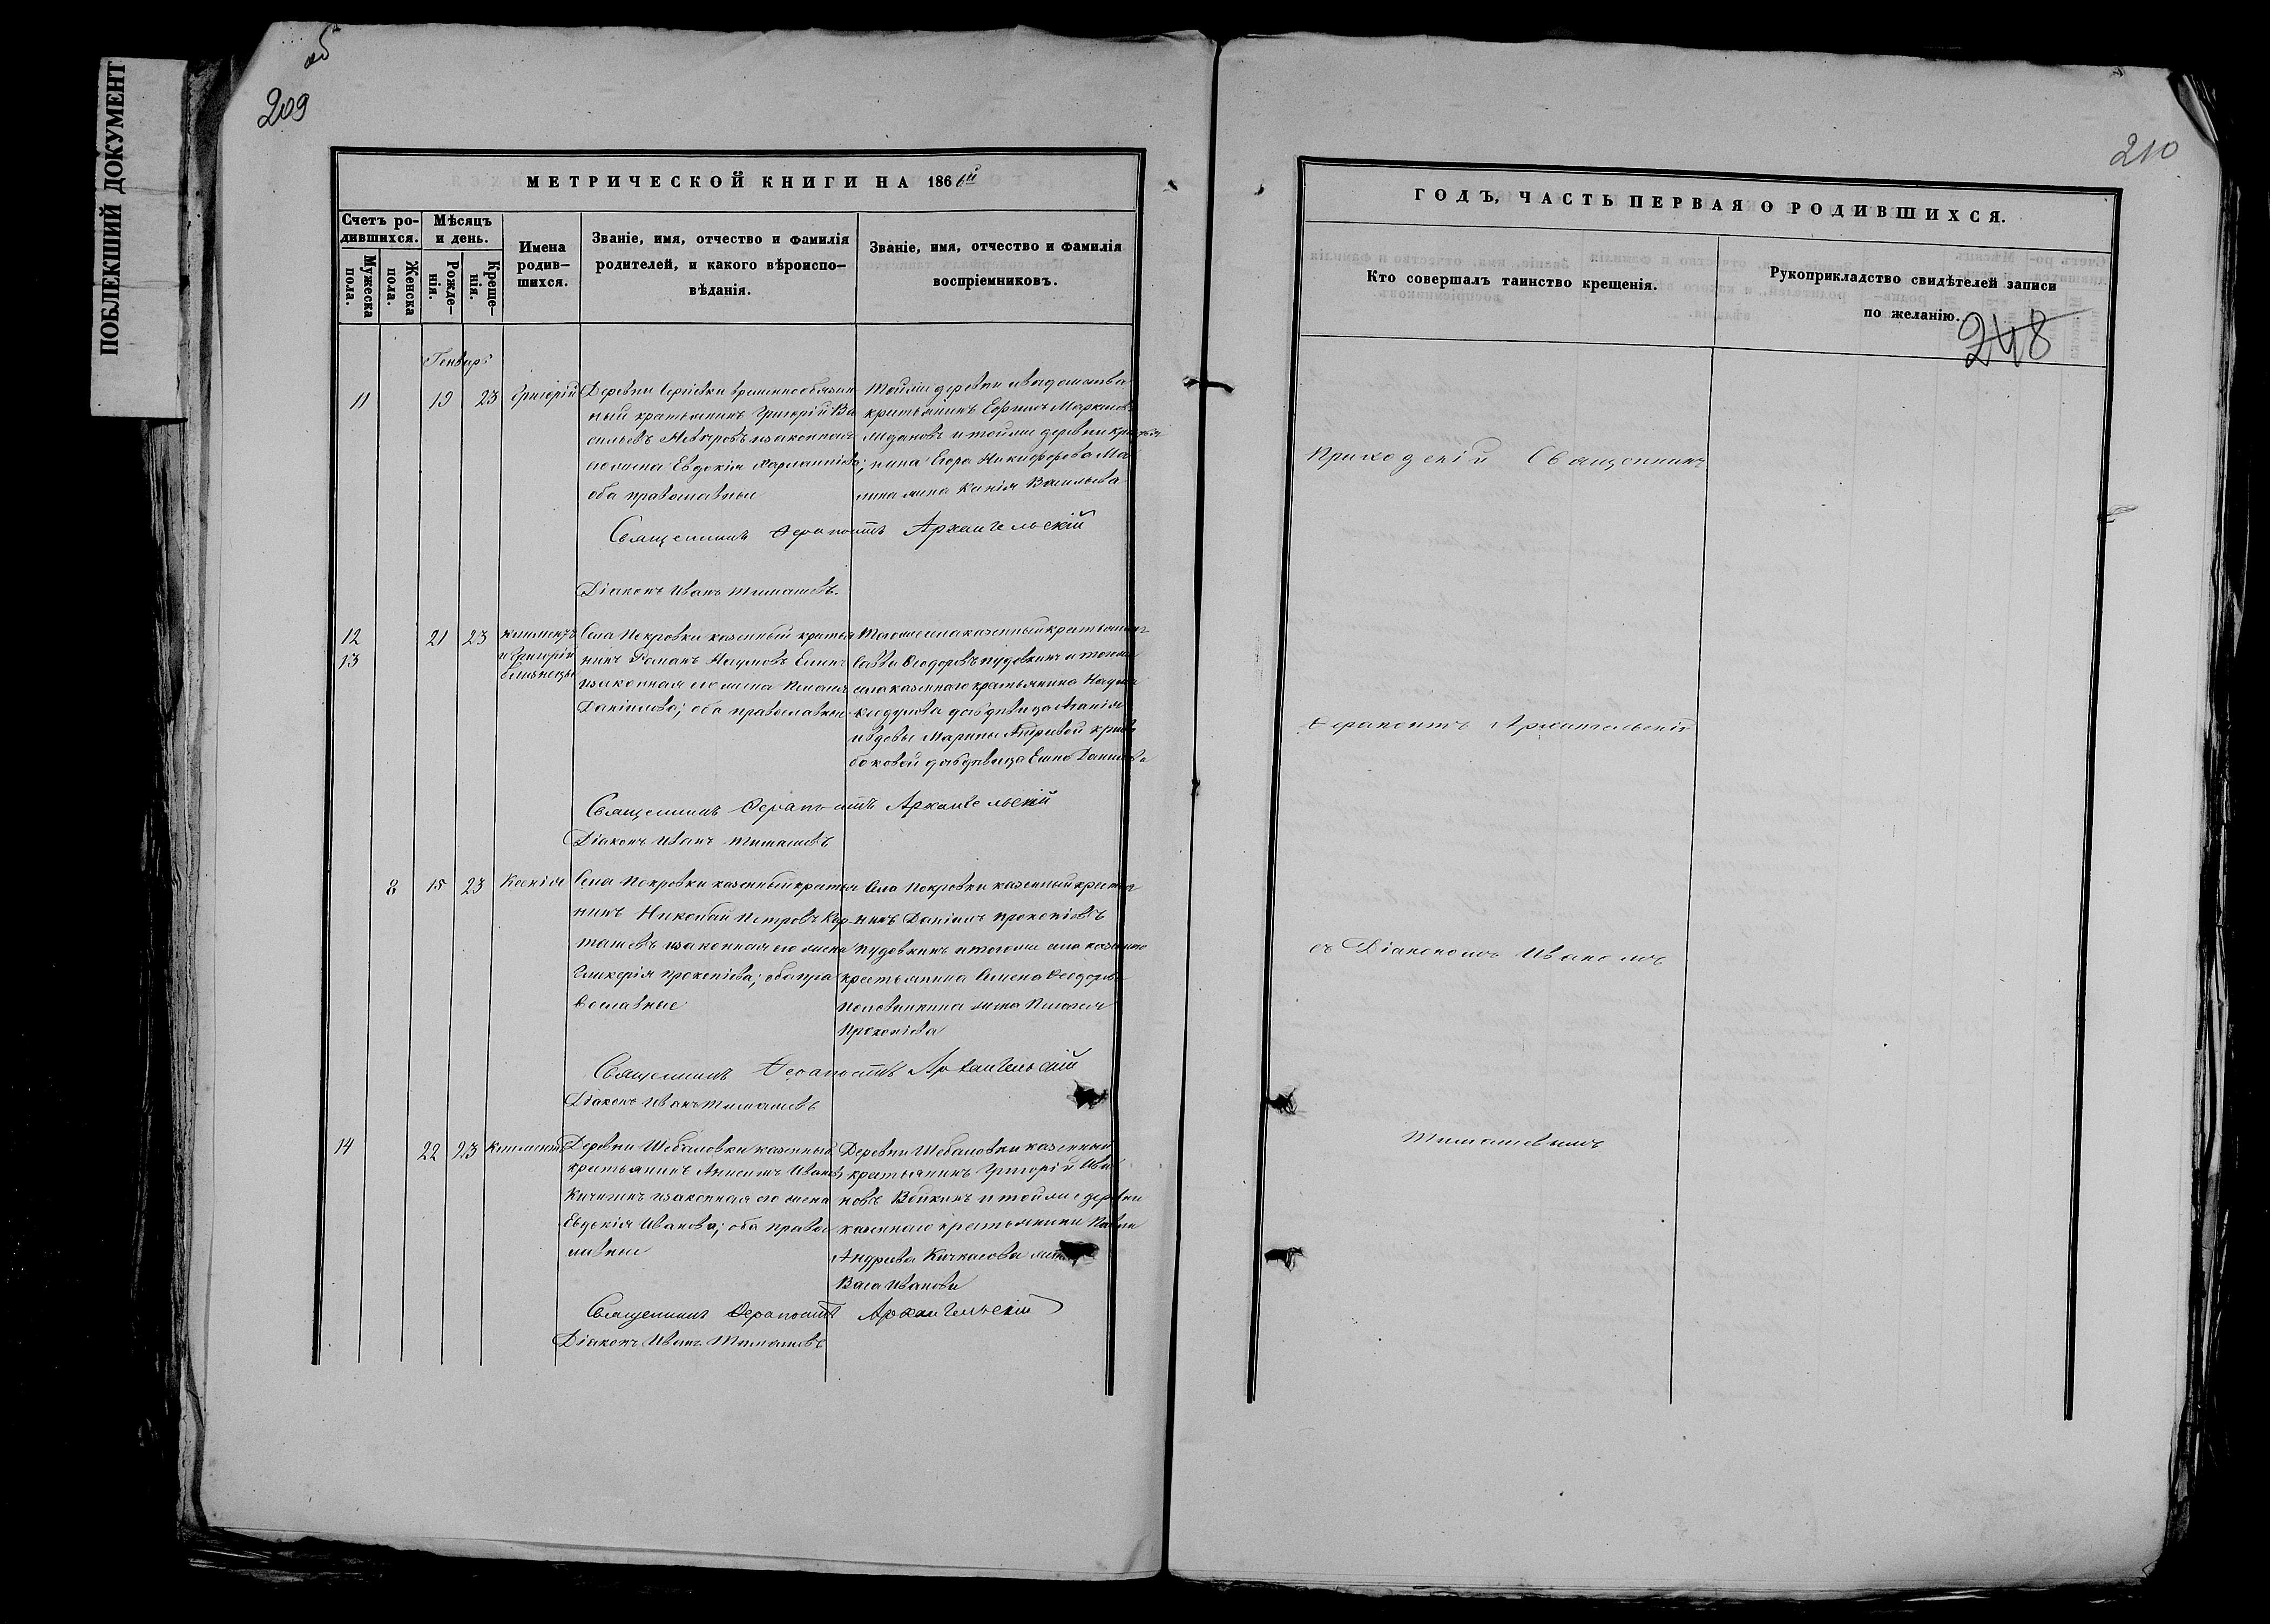 ПОБЛЕКШИЙ ДОКУМЕНТ
об
209
МЕТРИЧЕСКОЙ КНИГИ НА 1866й
Счетъ ро-
дившихся.
Мужеска
пола.
Женска
пола.
Мѣсяцъ
и день.
Рожде-
нія.
Креще-
нія.
Имена
родив-
шихся.
Званіе, имя, отчество и фамилія
родителей, и какого вѣроиспо-
вѣданія.
Званіе, имя, отчество и фамилія
воспріемниковъ.
Генварь
11 19 23 Григорій
Деревни временнообязан
ный крестьянинъ Григорій Ва
сильевъ и законная
его жена Евдокія
оба православные
Тойже деревни
крестьянинъ Ефимъ Марковъ
и тойже деревни крестья
нина Егора Никифорова
жена Васильева
Священникъ Ферапонтъ Архангельскій
Діаконъ Иванъ Тимашевъ.
12
13
21 23 Климентъ
и Григорій
близнецы
Села Покровки казенный крестья
нинъ Романъ Наумовъ
и законная его жена Пелагія
Даніилова; оба православные
Тогоже села казенный крестьянинъ
Савва Феодоровъ Пудовкинъ и тогоже
села казеннаго крестьянина Наума
дочь дѣвица
вдовы Марины
дочь дѣвица Данилова
Священникъ Ферапонтъ Архангельскій
Діаконъ Иванъ Тимашевъ
8 15 23 Ксенія
Села Покровки казенный крестья
нинъ Николай Петровъ Кар
ташевъ и законная его жена
Гликерія Прокопіева; оба пра
вославные
Села Покровки казенный крестья
нинъ Даніилъ Прокопіевъ
Пудовкинъ и тогоже села казеннаго
крестьянина Семена Феодорова
Половинкина жена Пелагея
Прокопіева
Священникъ Ферапонтъ Архангельскій
Діаконъ Иванъ Тимашевъ
14 22 23 Климентъ
Деревни Шебаловки казенный
крестьянинъ Анисимъ Ивановъ
Кичигинъ и законная его жена
Евдокія Иванова; оба правос
лавные
Деревни Шебаловки казенный
крестьянинъ Григорій Ива
новъ и тойже деревни
казеннаго крестьянина Павла
Андреева жена
Васа Иванова
Священникъ Ферапонтъ Архангельскій
Діаконъ Иванъ Тимашевъ
210
ГОДЪ, ЧАСТЬ ПЕРВАЯ О РОДИВШИХСЯ.
Кто совершалъ таинство крещенія.
Рукоприкладство свидѣтелей записи
по желанію.
248
Приходскій Священникъ
Ферапонтъ Архангельскій
съ Діакономъ Иваномъ
Тимашевымъ